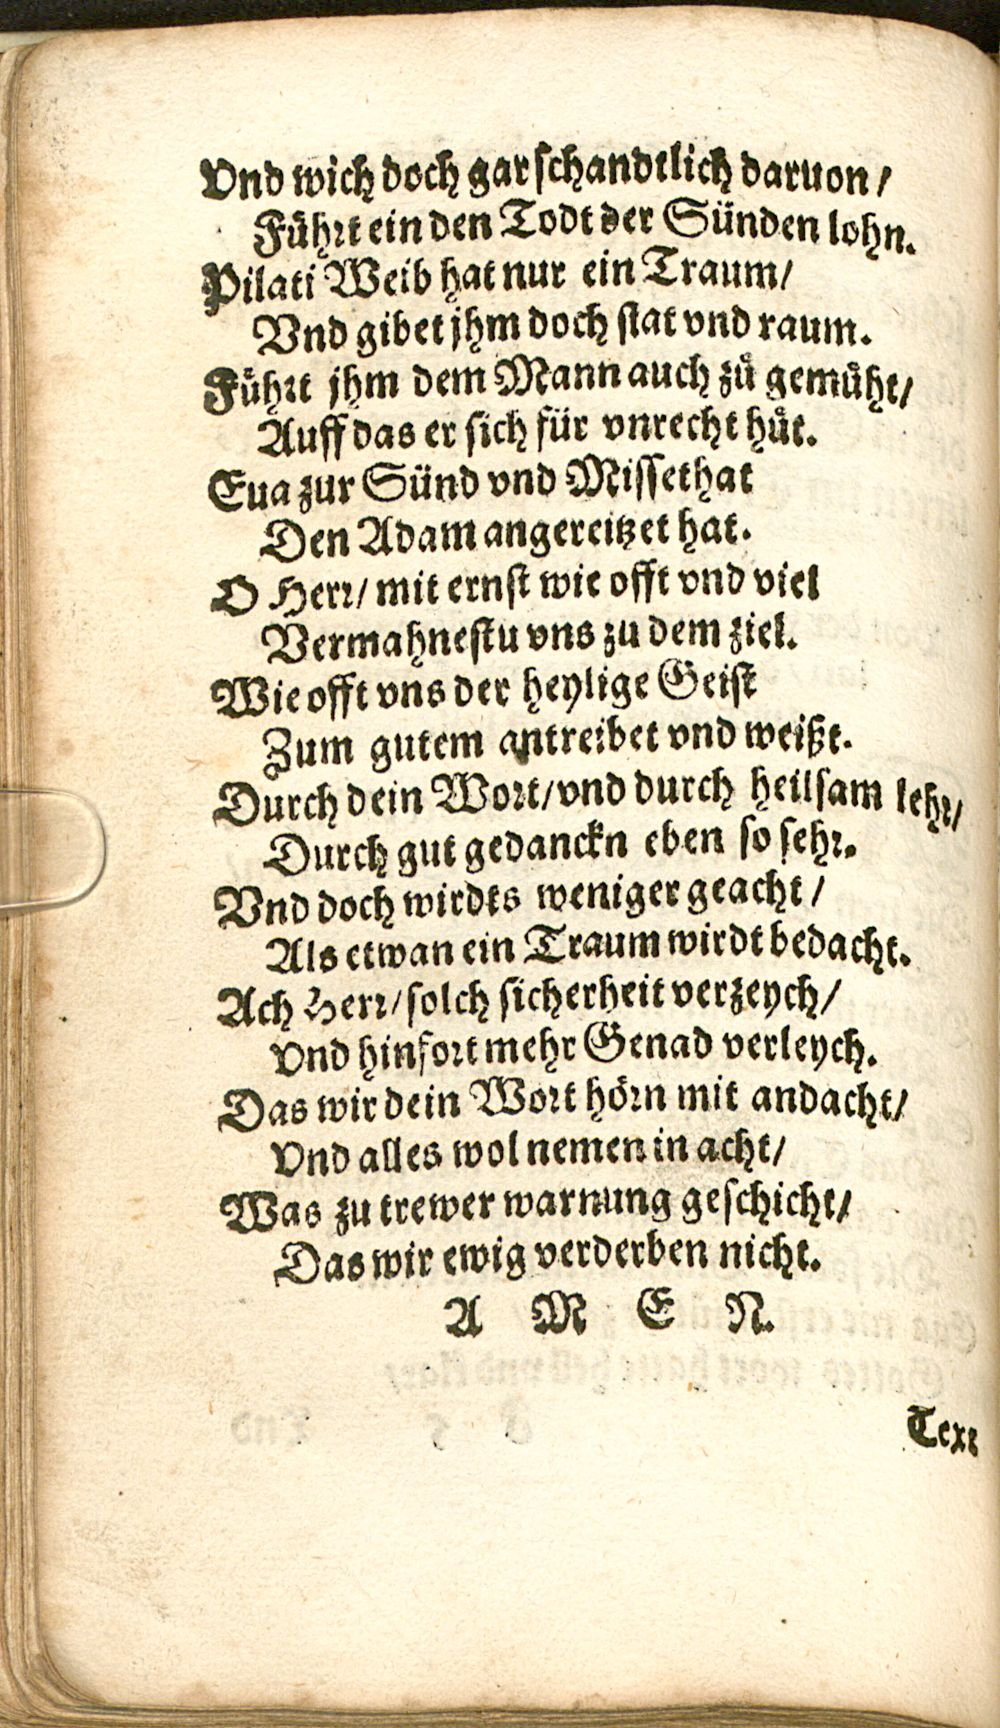 Vnd wich doch gar schandtlich daruon/
Fuͤhrt ein den Todt der Sünden lohn.
Pilati Weib hat nur ein Traum/
Vnd gibet jhm doch stat vnd raum.
Fuͤhrt jhm dem Mann auch zů gemuͤht/
Auff das er sich für vnrecht huͤt.
Eua zur Sünd vnd Missethat
Den Adam angereitzet hat.
O Herr/ mit ernst wie offt vnd viel
Vermahnestu vns zu dem ziel.
Wie offt vns der heylige Geist
Zum gutem antreibet vnd weißt.
Durch dein Wort/ vnd durch heilsam lehr/
Durch gut gedanckn eben so sehr.
Vnd doch wirdts weniger geacht/
Als etwan ein Traum wirdt bedacht.
Ach Herr/ solch sicherheit verzeych/
Vnd hinfort mehr Genad verleych.
Das wir dein Wort hoͤrn mit andacht/
Vnd alles wol nemen in acht/
Was zu trewer warnung geschicht/
Das wir ewig verderben nicht.
A M E N.
Text